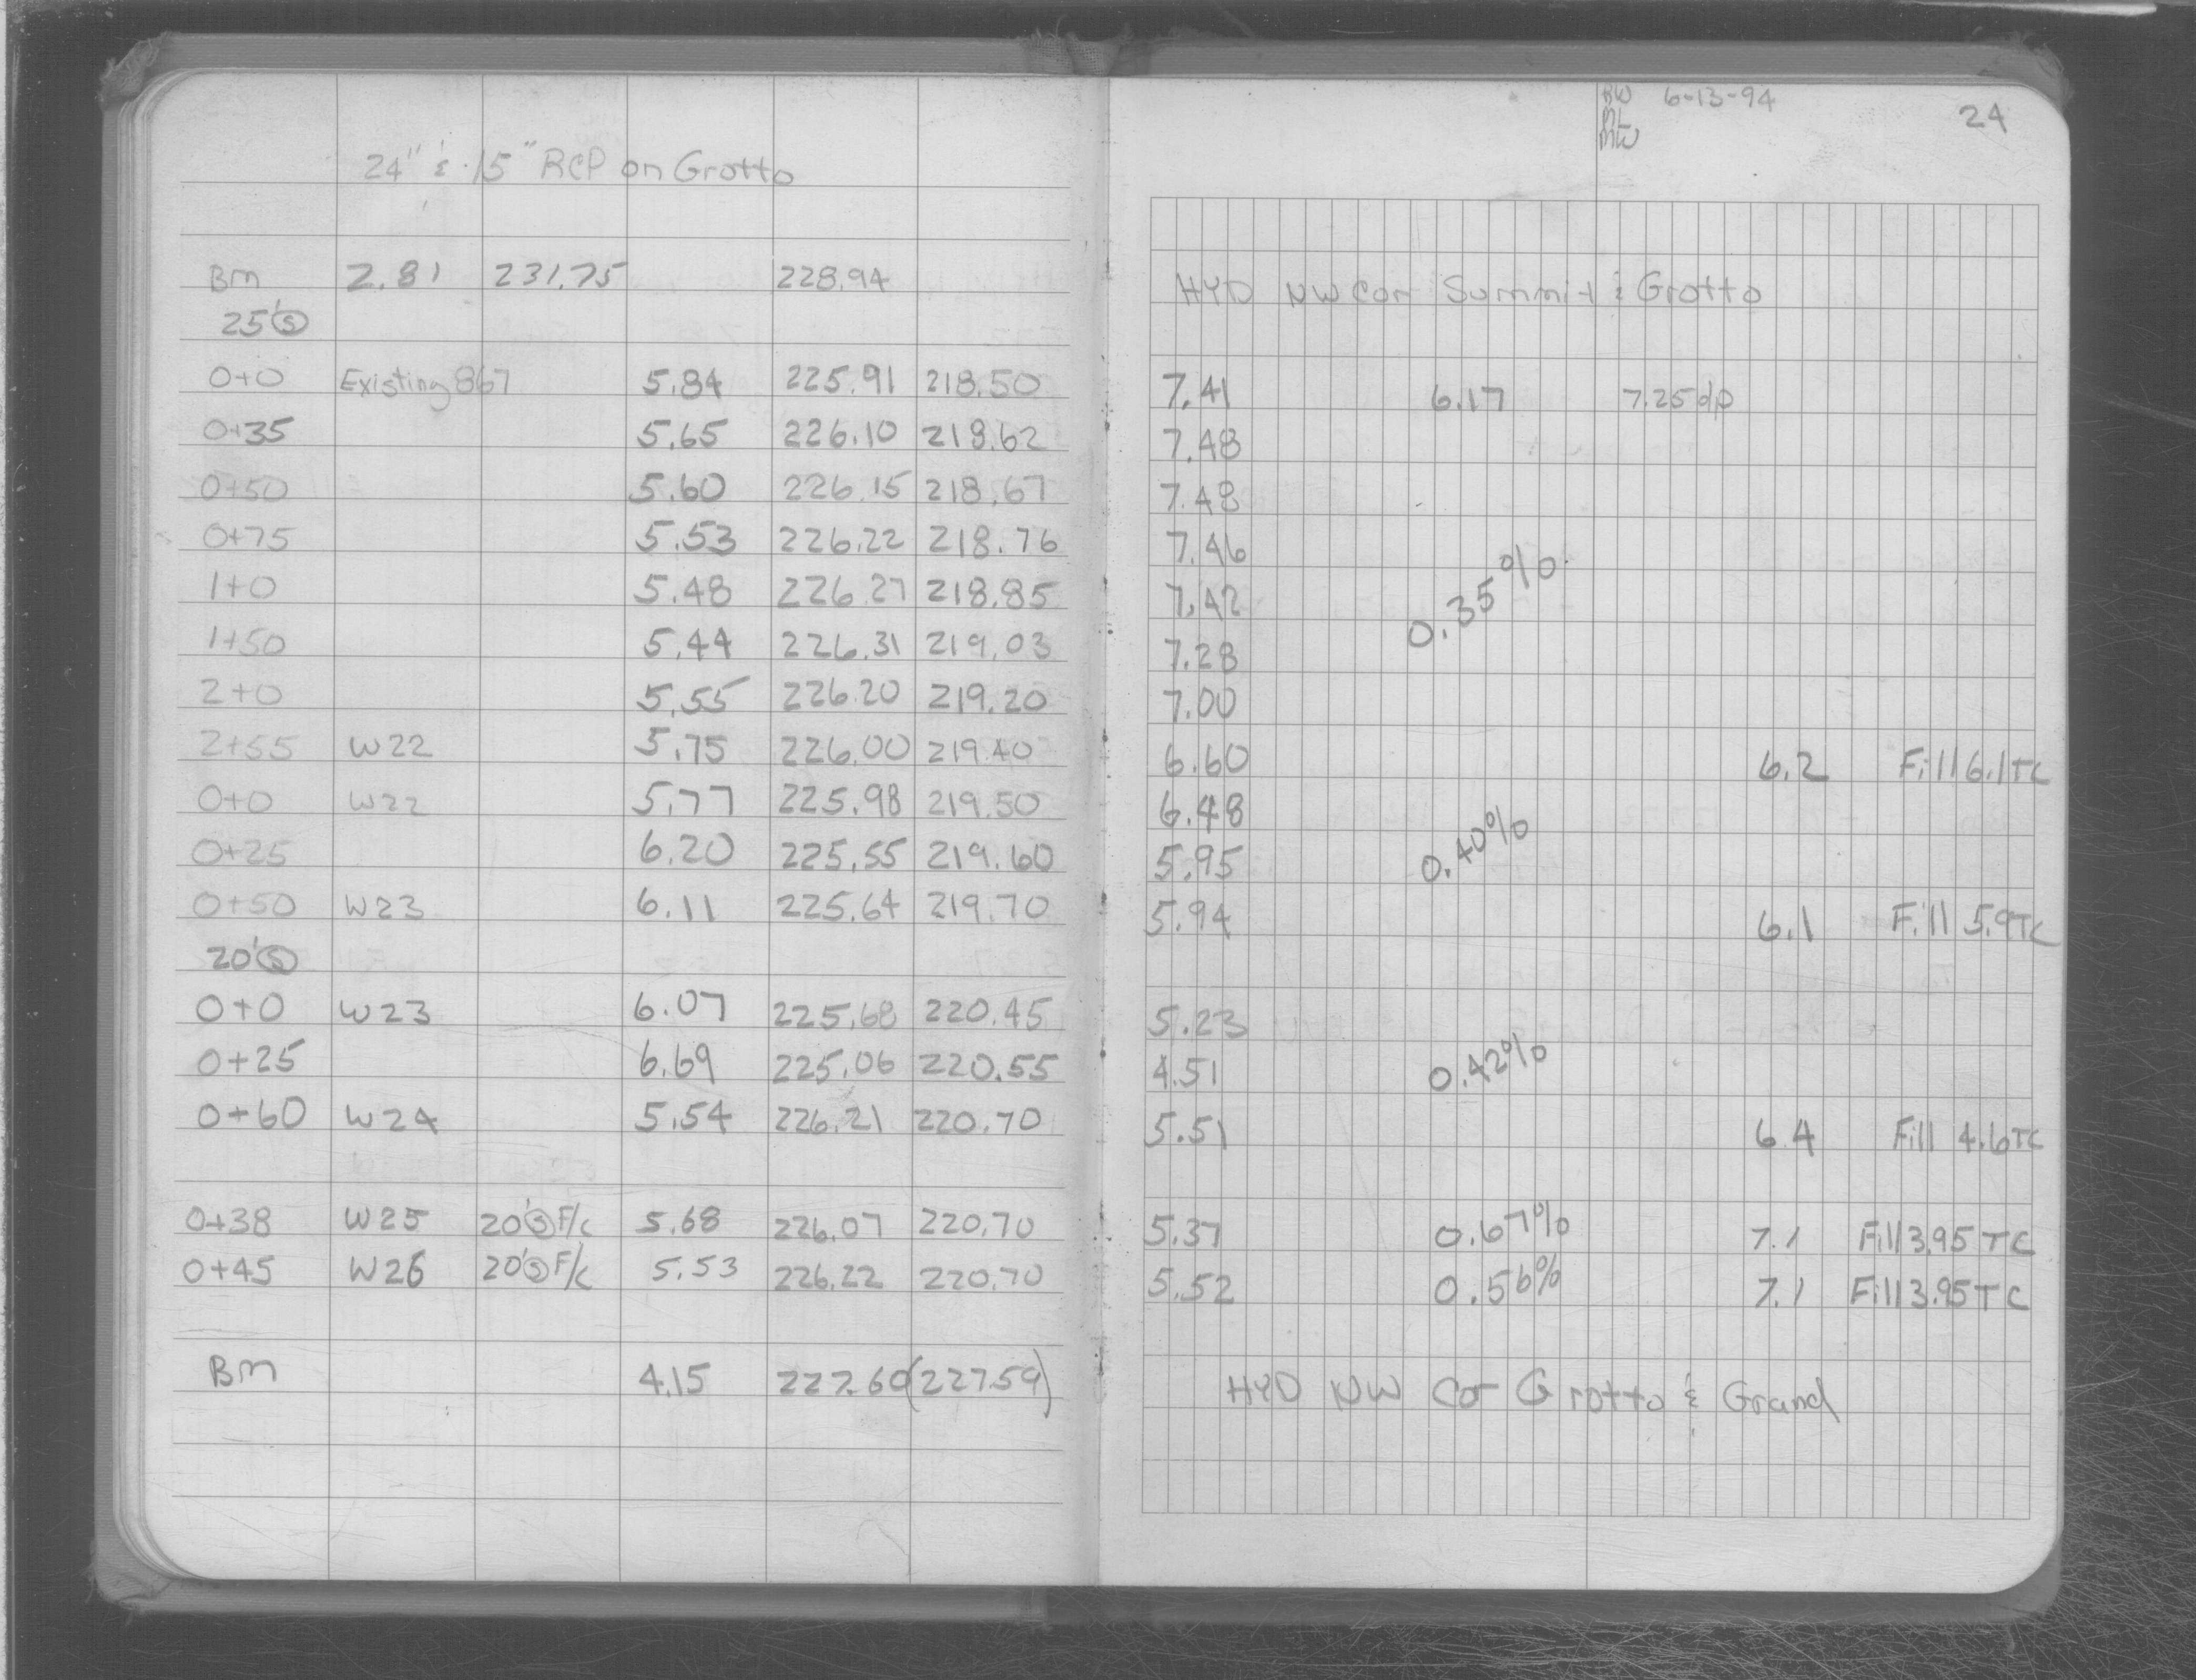 24" & 15" RCP on Grotto
BM 2.81 231.75 228.94
25' Ⓢ
0+0 Existing 867 5.84 225.91 218.50
0+35 5.65 226.10 218.62
0+50 5.60 226.15 218.67
0+75 5.53 226.22 218.76
1+0 5.48 226.27 218.85
1+50 5.44 226.31 219.03
2+0 5.55 226.20 219.20
2+55 W22 5.75 226.00 219.40
0+0 W22 5.77 225.98 219.50
0+25 6.20 225.55 219.60
0+50 W23 6.11 225.64 219.70
20' Ⓢ
0+0 W23 6.07 225.68 220.45
0+25 6.69 225.06 220.55
0+60 W24 5.54 226.21 220.70
0+38 W25 20' Ⓢ F/C 5.68 226.07 220.70
0+45 W26 20' Ⓢ F/C 5.53 226.22 220.70
BM 4.15 227.60 (227.59)
BW 6-13-94
ML
MW
24
HYD NW Cor Summit & Grotto
7.41 6.17 7.25 dp
7.48
7.48
7.46
7.42 0.35%
7.28
7.00
6.60 6.2 Fill 6.1 TC
6.48
5.95 0.40%
5.94 6.1 Fill 5.9 TC
5.23
4.51 0.42%
5.51 6.4 Fill 4.6 TC
5.37 0.67% 7.1 Fill 3.95 TC
5.52 0.56% 7.1 Fill 3.95 TC
HYD NW Cor Grotto & Grand